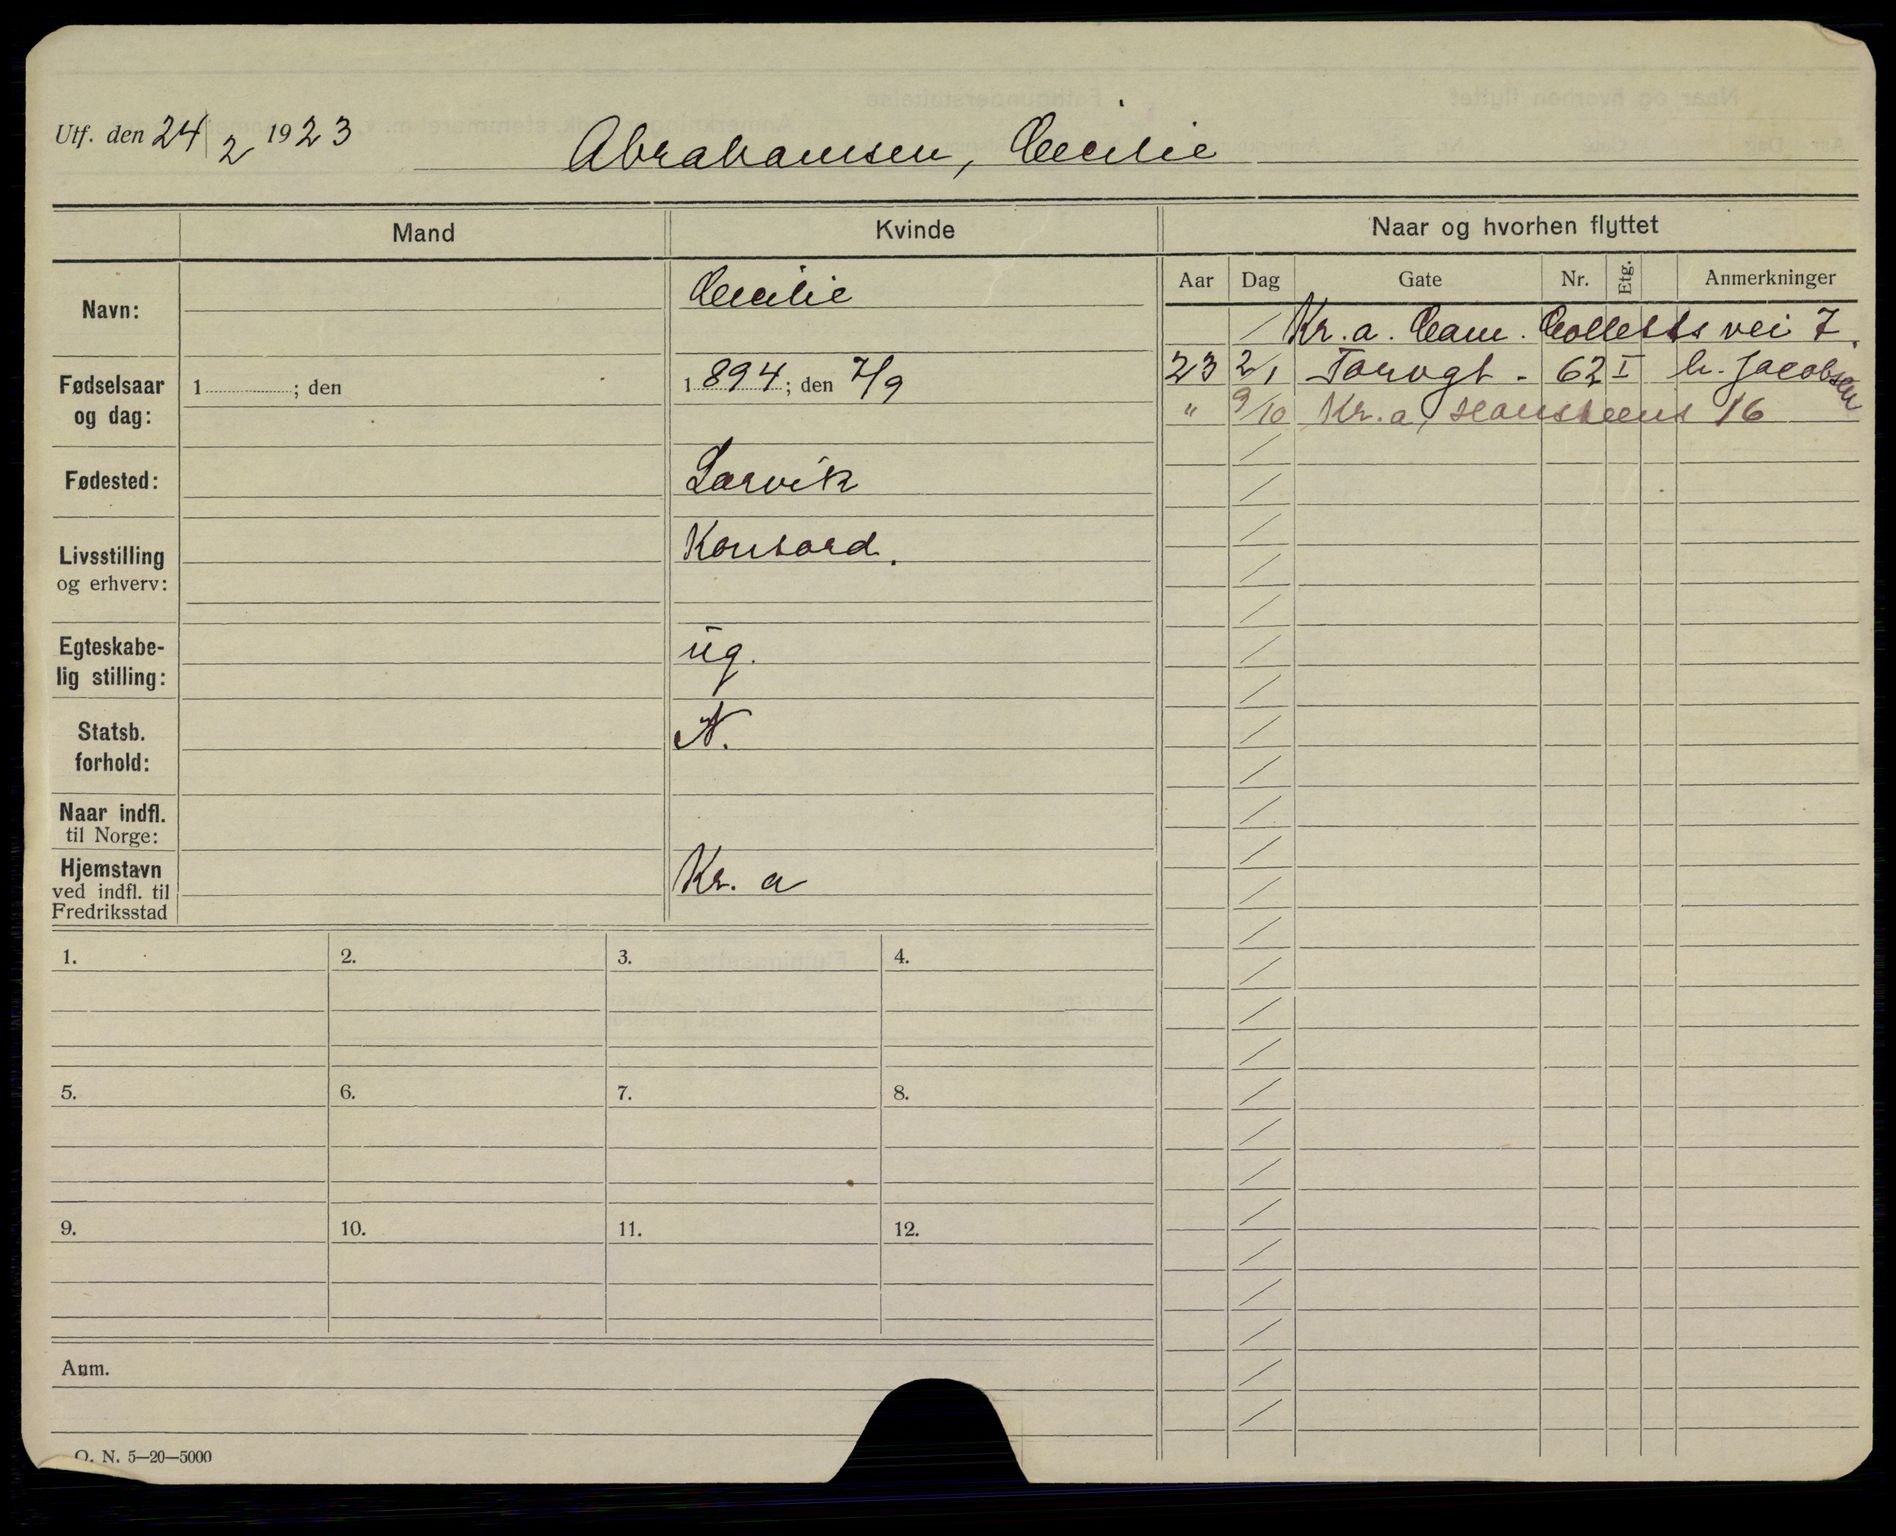 Utf. den 24/2 1923
Abrahamsen, Cecilie
Mand
Kvinde
Naar og hvorhen flyttet
Aar Dag Gate Nr. Etg. Anmerkninger
Kr.a. Cam. Colletts vei 7.
23 2/1 Torvgt. 62 I h. Jacobsen
" 9/10 Kr.a, Hansteens 16
Navn: Cecilie
Fødselsaar
og dag:
1 ; den
1894; den 7/9
Fødested: Larvik
Livsstilling
og erhverv:
Kontord.
Egteskabe-
lig stilling:
ug.
Statsb.
forhold:
N.
Naar indfl.
til Norge:
Hjemstavn
ved indfl. til
Fredriksstad
Kr. a
1. 2. 3. 4.
5. 6. 7. 8.
9. 10. 11. 12.
Anm.
O. N. 5—20—5000